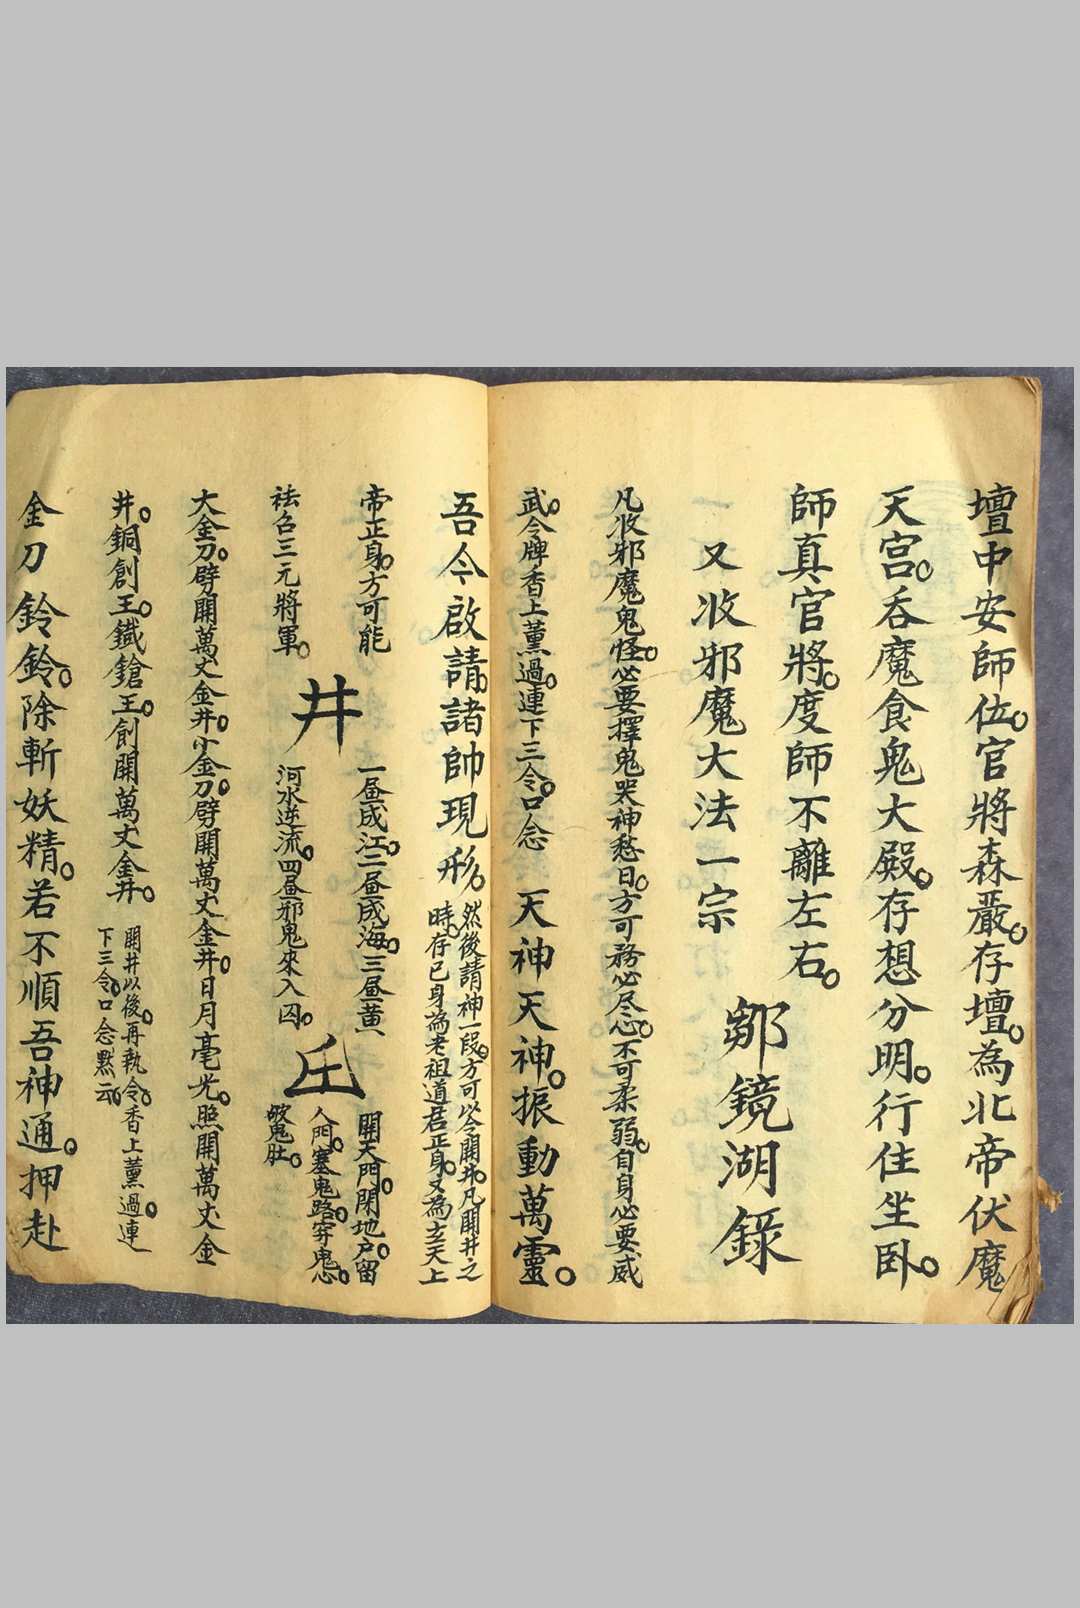 壇中安師位。官將森嚴。存壇。為北帝伏魔
天宮。吞魔食鬼大殿。存想分明。行住坐卧。
師真官將。度師不離左右。
鄒鏡湖錄
又收邪魔大法一宗
凡收邪魔鬼怪。必要擇鬼哭神愁日。方可務必尽心。不可柔弱。自身必要威
武。令牌香上薰過。連下三令。口念 天神天神。振動萬靈。
吾今啟請。諸帥現形。
然後請神一段。方可以令開井。凡開井之
時。存已身為老祖道君正身。又為玄天上
帝正身。方可能
祛召三元將軍。
井
一昼成江。二昼成海。三昼黄
河水逆流。四昼邪鬼來入囚。
丘
開天門。閉地户。留
人門。塞鬼路。穿鬼心。
破鬼肚。
大金刀。劈開萬丈金井。小金刀。劈開萬丈金井。日月毫光。照開萬丈金
井。銅創王。鐵鎗王。創開萬丈金井。
開井以後。再執令。香上薰過。連
下三令。口念默云。
金刀鈴鈴。除斬妖精。若不順吾神通。押赴